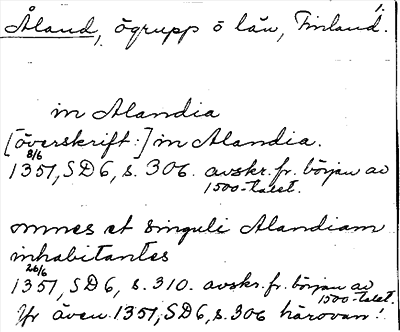 1.
Åland, ögrupp o län, Finland.
in Alandia
[överskrift:] in Alandia.
8/6
1351, SD6, s. 306. avskr. fr. början av
1500-talet.
omnes et singuli Alandiam
inhabitantes
26/6
1351, SD6, s. 310. avskr. fr. början av
1500-talet.
Jfr även 1351, SD6, s. 306 härovan!